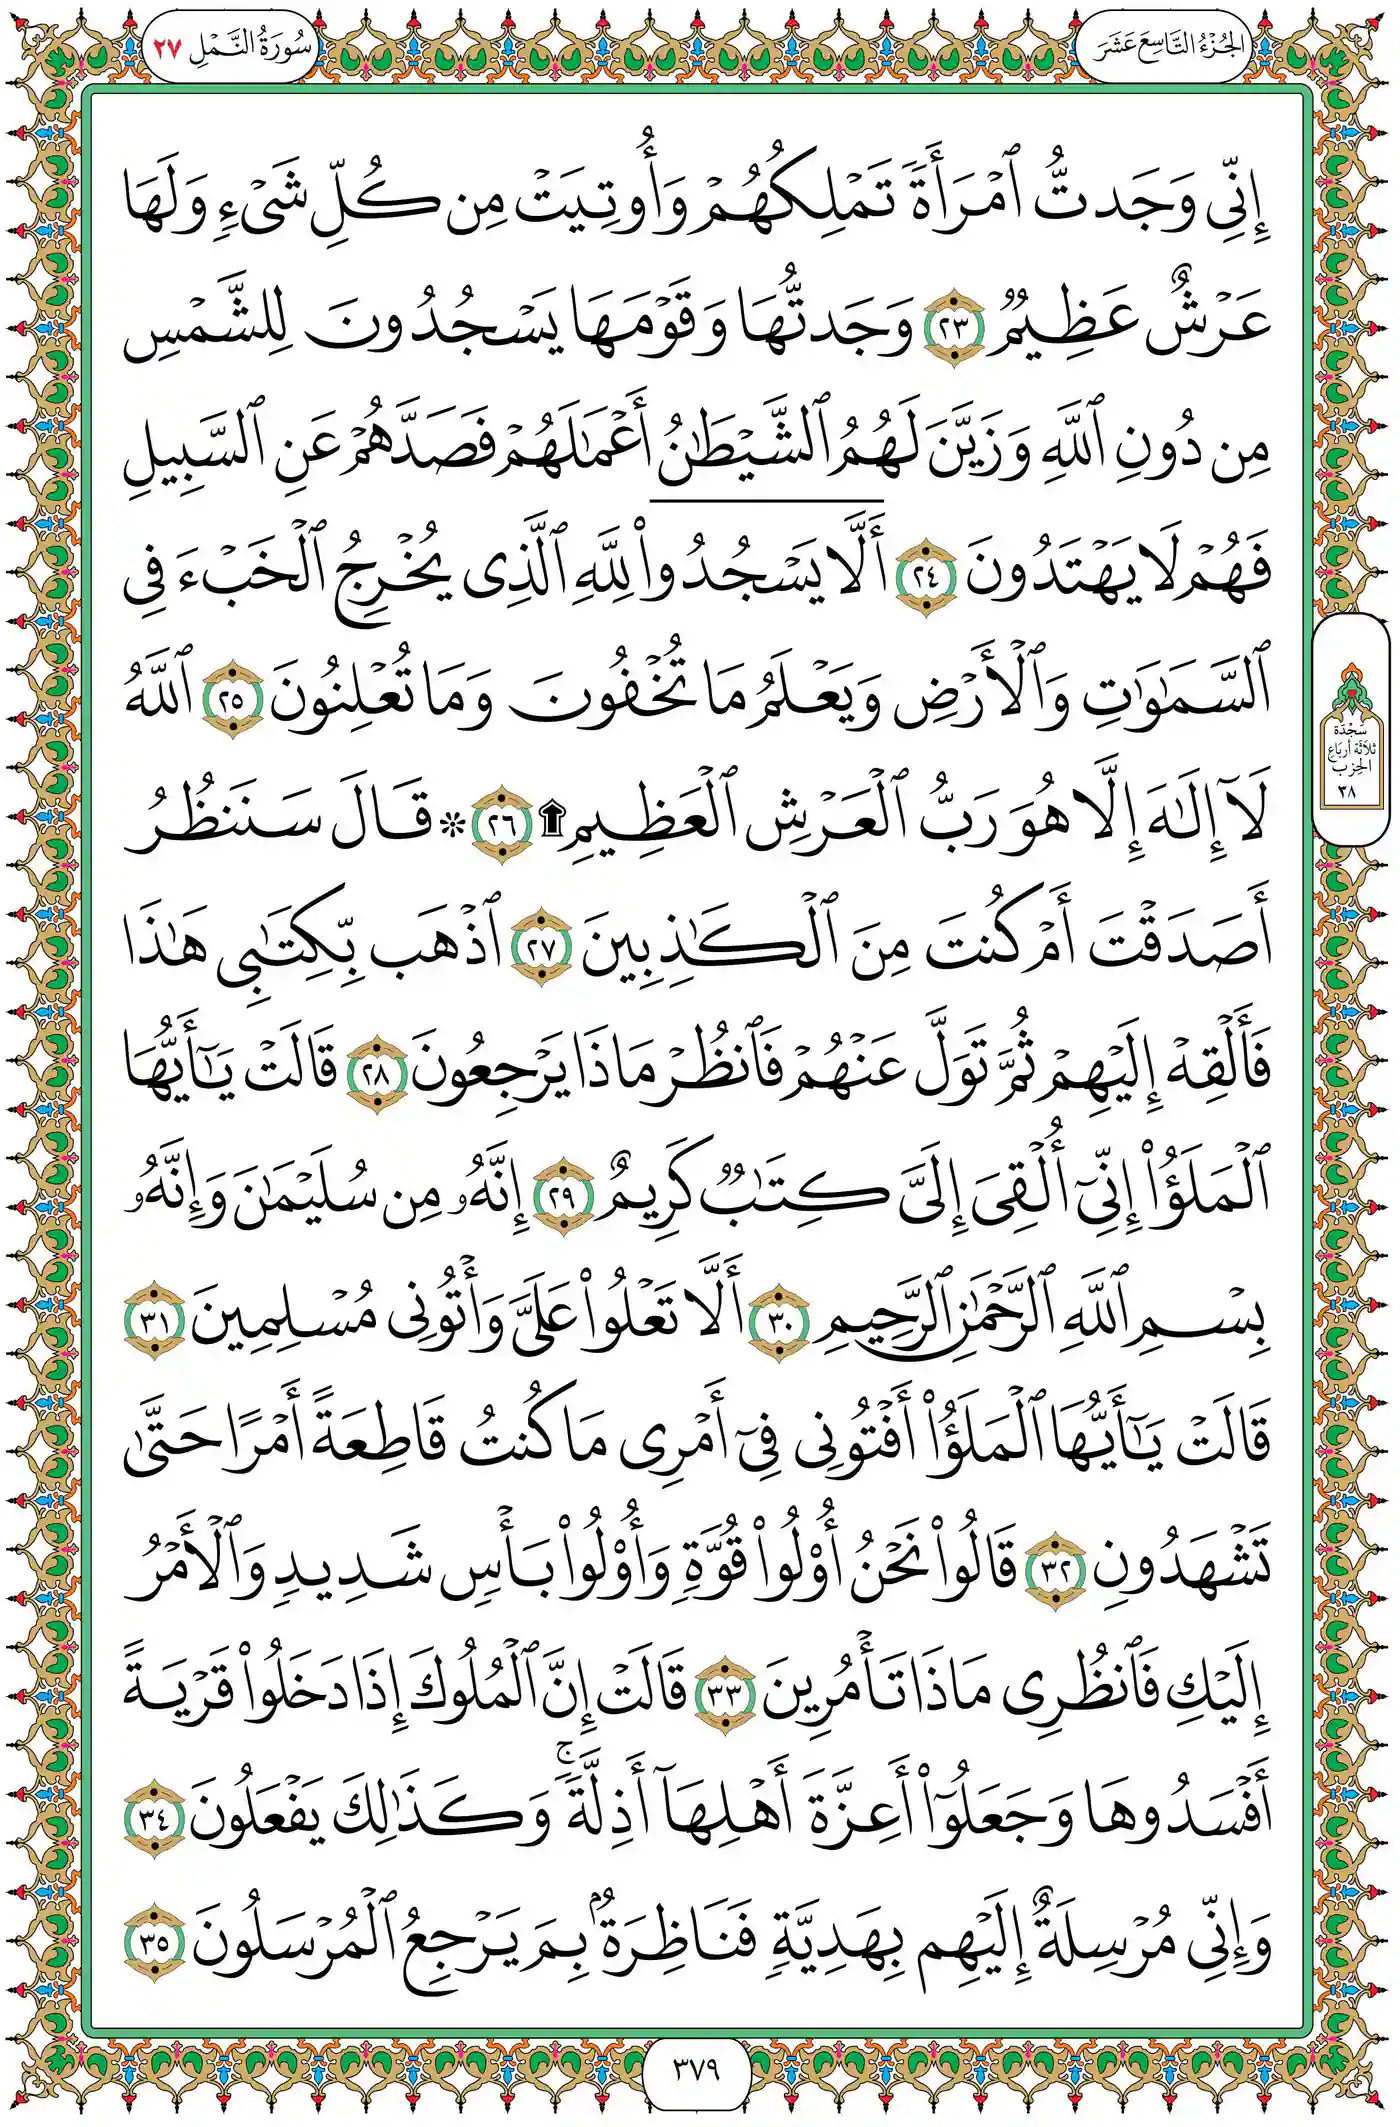 الجُزْءُ التَّاسِعَ عَشَرَ
سُورَةُ النَّمْلِ ٢٧
إِنِّي وَجَدتُّ ٱمْرَأَةً تَمْلِكُهُمْ وَأُوتِيَتْ مِن كُلِّ شَىْءٍ وَلَهَا
عَرْشٌ عَظِيمٌ ٢٣ وَجَدتُّهَا وَقَوْمَهَا يَسْجُدُونَ لِلشَّمْسِ
مِن دُونِ ٱللَّهِ وَزَيَّنَ لَهُمُ ٱلشَّيْطَٰنُ أَعْمَٰلَهُمْ فَصَدَّهُمْ عَنِ ٱلسَّبِيلِ
فَهُمْ لَا يَهْتَدُونَ ٢٤ أَلَّا يَسْجُدُوا۟ لِلَّهِ ٱلَّذِى يُخْرِجُ ٱلْخَبْءَ فِى
ٱلسَّمَٰوَٰتِ وَٱلْأَرْضِ وَيَعْلَمُ مَا تُخْفُونَ وَمَا تُعْلِنُونَ ٢٥ ٱللَّهُ
لَآ إِلَٰهَ إِلَّا هُوَ رَبُّ ٱلْعَرْشِ ٱلْعَظِيمِ ۩ ٢٦ * قَالَ سَنَنظُرُ
أَصَدَقْتَ أَمْ كُنتَ مِنَ ٱلْكَٰذِبِينَ ٢٧ ٱذْهَب بِّكِتَٰبِى هَٰذَا
فَأَلْقِهْ إِلَيْهِمْ ثُمَّ تَوَلَّ عَنْهُمْ فَٱنظُرْ مَاذَا يَرْجِعُونَ ٢٨ قَالَتْ يَٰٓأَيُّهَا
ٱلْمَلَؤُا۟ إِنِّىٓ أُلْقِىَ إِلَىَّ كِتَٰبٌ كَرِيمٌ ٢٩ إِنَّهُۥ مِن سُلَيْمَٰنَ وَإِنَّهُۥ
بِسْمِ ٱللَّهِ ٱلرَّحْمَٰنِ ٱلرَّحِيمِ ٣٠ أَلَّا تَعْلُوا۟ عَلَىَّ وَأْتُونِى مُسْلِمِينَ ٣١
قَالَتْ يَٰٓأَيُّهَا ٱلْمَلَؤُا۟ أَفْتُونِى فِىٓ أَمْرِى مَا كُنتُ قَاطِعَةً أَمْرًا حَتَّىٰ
تَشْهَدُونِ ٣٢ قَالُوا۟ نَحْنُ أُو۟لُوا۟ قُوَّةٍ وَأُو۟لُوا۟ بَأْسٍ شَدِيدٍ وَٱلْأَمْرُ
إِلَيْكِ فَٱنظُرِى مَاذَا تَأْمُرِينَ ٣٣ قَالَتْ إِنَّ ٱلْمُلُوكَ إِذَا دَخَلُوا۟ قَرْيَةً
أَفْسَدُوهَا وَجَعَلُوٓا۟ أَعِزَّةَ أَهْلِهَآ أَذِلَّةً ۚ وَكَذَٰلِكَ يَفْعَلُونَ ٣٤
وَإِنِّى مُرْسِلَةٌ إِلَيْهِم بِهَدِيَّةٍ فَنَاظِرَةٌۢ بِمَ يَرْجِعُ ٱلْمُرْسَلُونَ ٣٥
سَجْدَة
ثلاثة أرباع
الحِزب
٣٨
٣٧٩